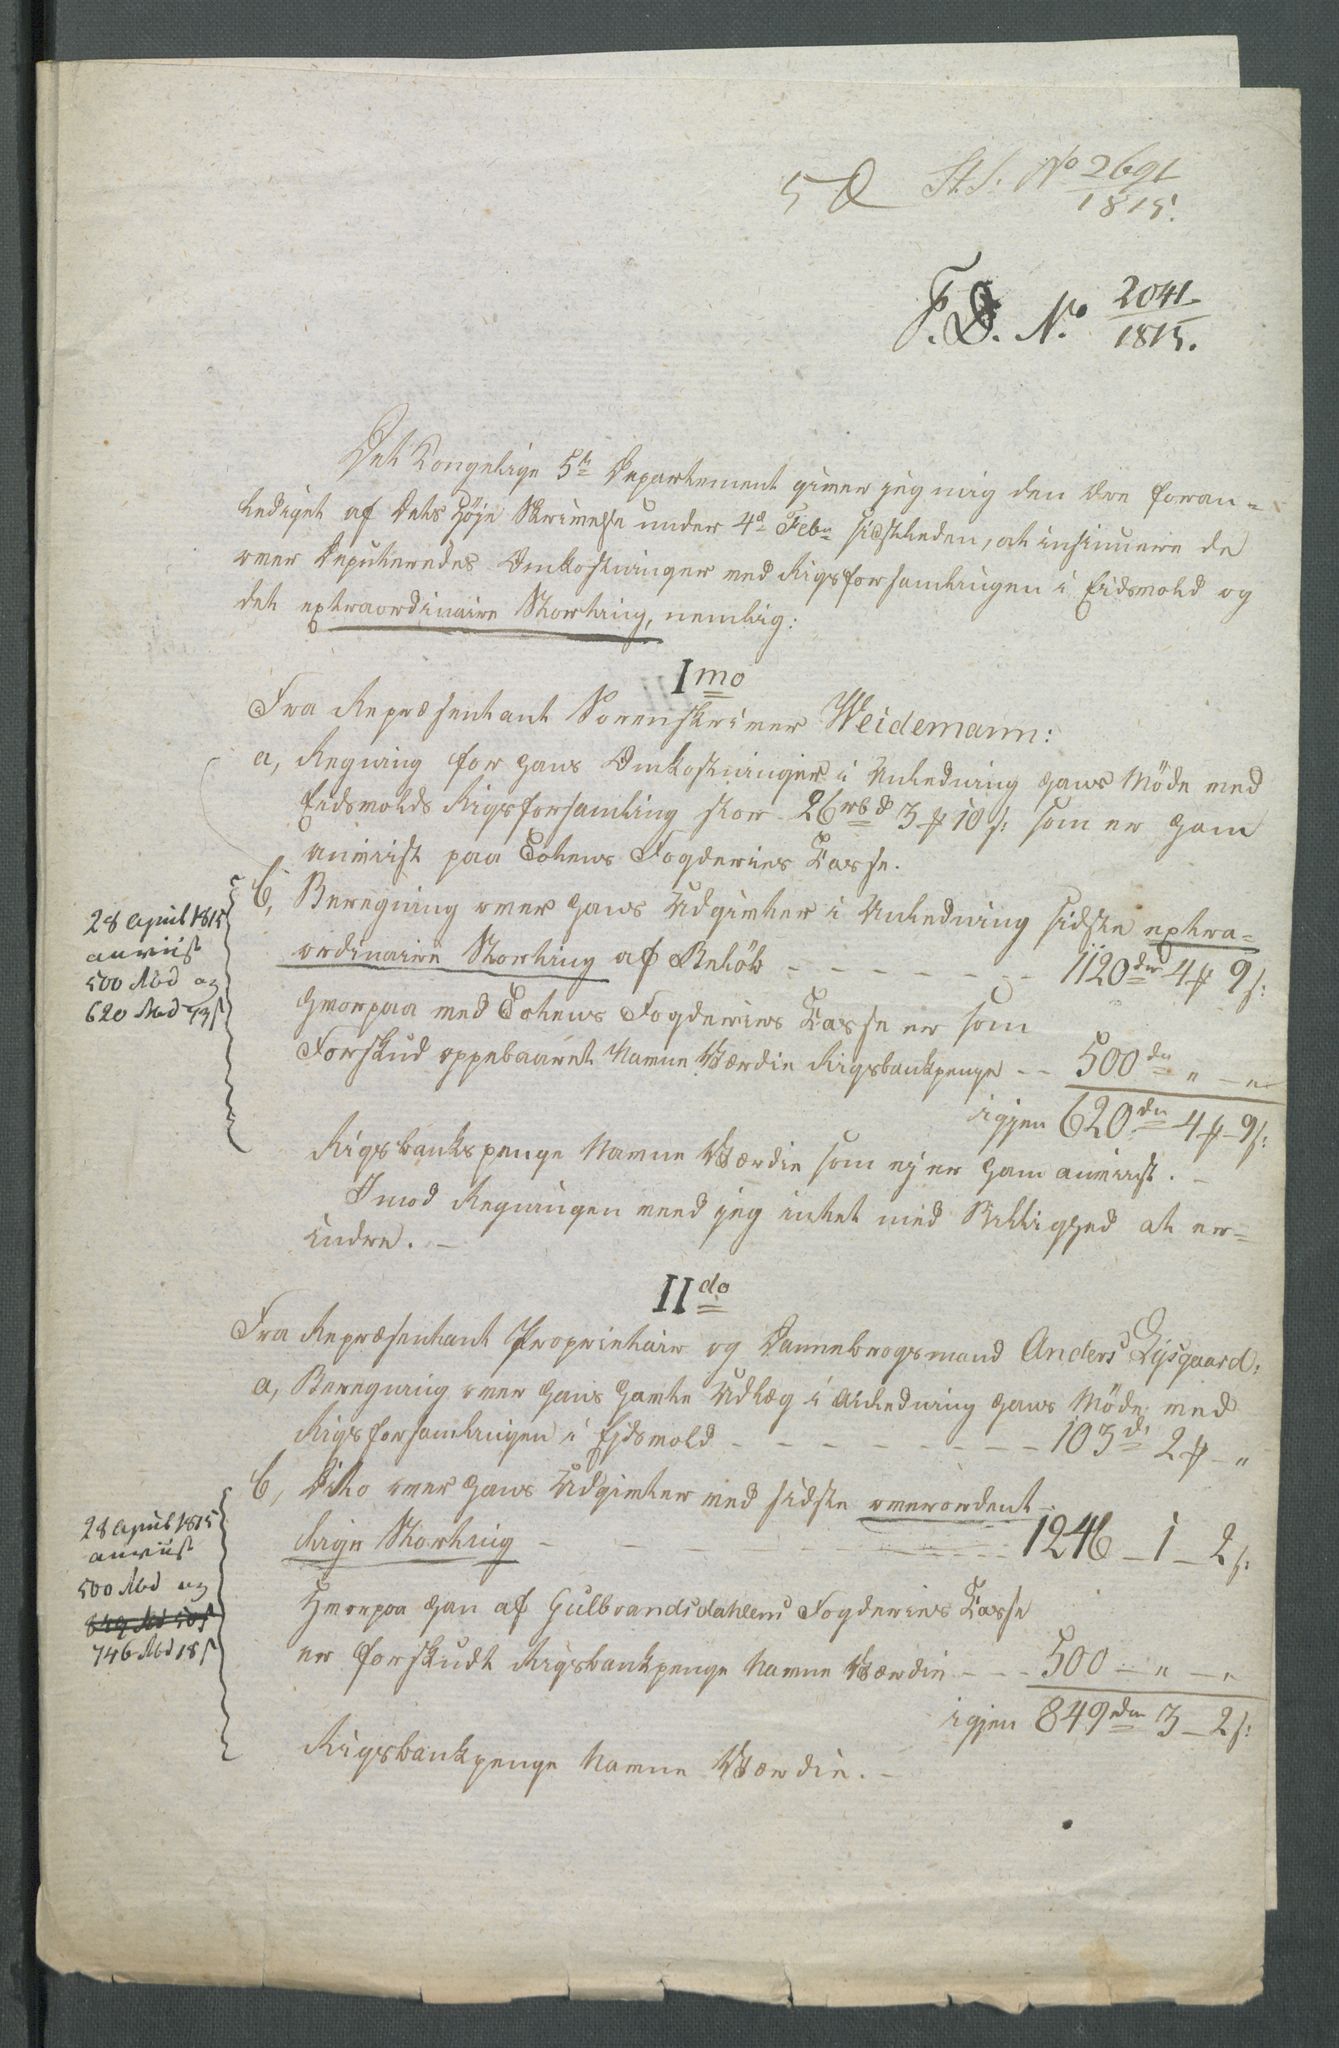 5 D St. S. No 2691
1815.
F. D. No 2041
1815.
Det Kongelige 5te Departement giver jeg mig den Ære foran=
lediget af Dets Høje Skrivelse under 4de Febr sidstleden, at insinuere de
over Deputeredes Omkostninger ved Rigsforsamlingen i Eidsvold og
det extraordinaire Storting, nemlig:
Imo
Fra Repræsentant Sorenskriver Weidemann:
a, Regning for hans Omkostninger i Anledning hans Möde ved
Eidsvolds Rigsforsamling stor 26 rbd 3 # 10 s: som er ham
anviist paa Totens Fogderies Casse.
b, Beregning over hans Udgivter i Anledning sidste extra=
ordinaire Storting af Belöb - - - - - - - - 1120 dr 4 # 9 s:
hvorpaa ved Totens Fogderies Casse er som
Forskud oppebaaret Navne Værdie Rigsbankpenge - - 500 dr " - "
igjen 620 dr 4 # - 9 s:
Rigsbankspenge Navne Værdie som ej er ham anviist. -
Imod Regningen veed jeg intet med Billighed at er=
indre. -
28 April 1815
anviist
500 Rbd og
620 Rbd 73 s
IIdo
Fra Repræsentant Proprietair og Dannebrogsmand Anders Lysgaard:
a, Beregning over hans havte Udlæg i Anledning hans Möde ved
Rigsforsamlingen i Ejdsvold - - - - - - - - - 103 dr 2 # - "
b, Dito over hans Udgivter ved sidste overordent-
lige Storting - - - - - - 1246 - 1 - 2 s:
Hvorpaa han af Gulbrandsdahlens Fogderies Casse
er forskudt Rigsbankpenge Navne Værdie - - - 500 - " - "
igjen 849 dr 3 - 2 s:
Rigsbankpenge Navne Værdie. -
28 April 1815
anviist
500 Rbd og
849 Rbd 50 s
746 Rbd 18 s